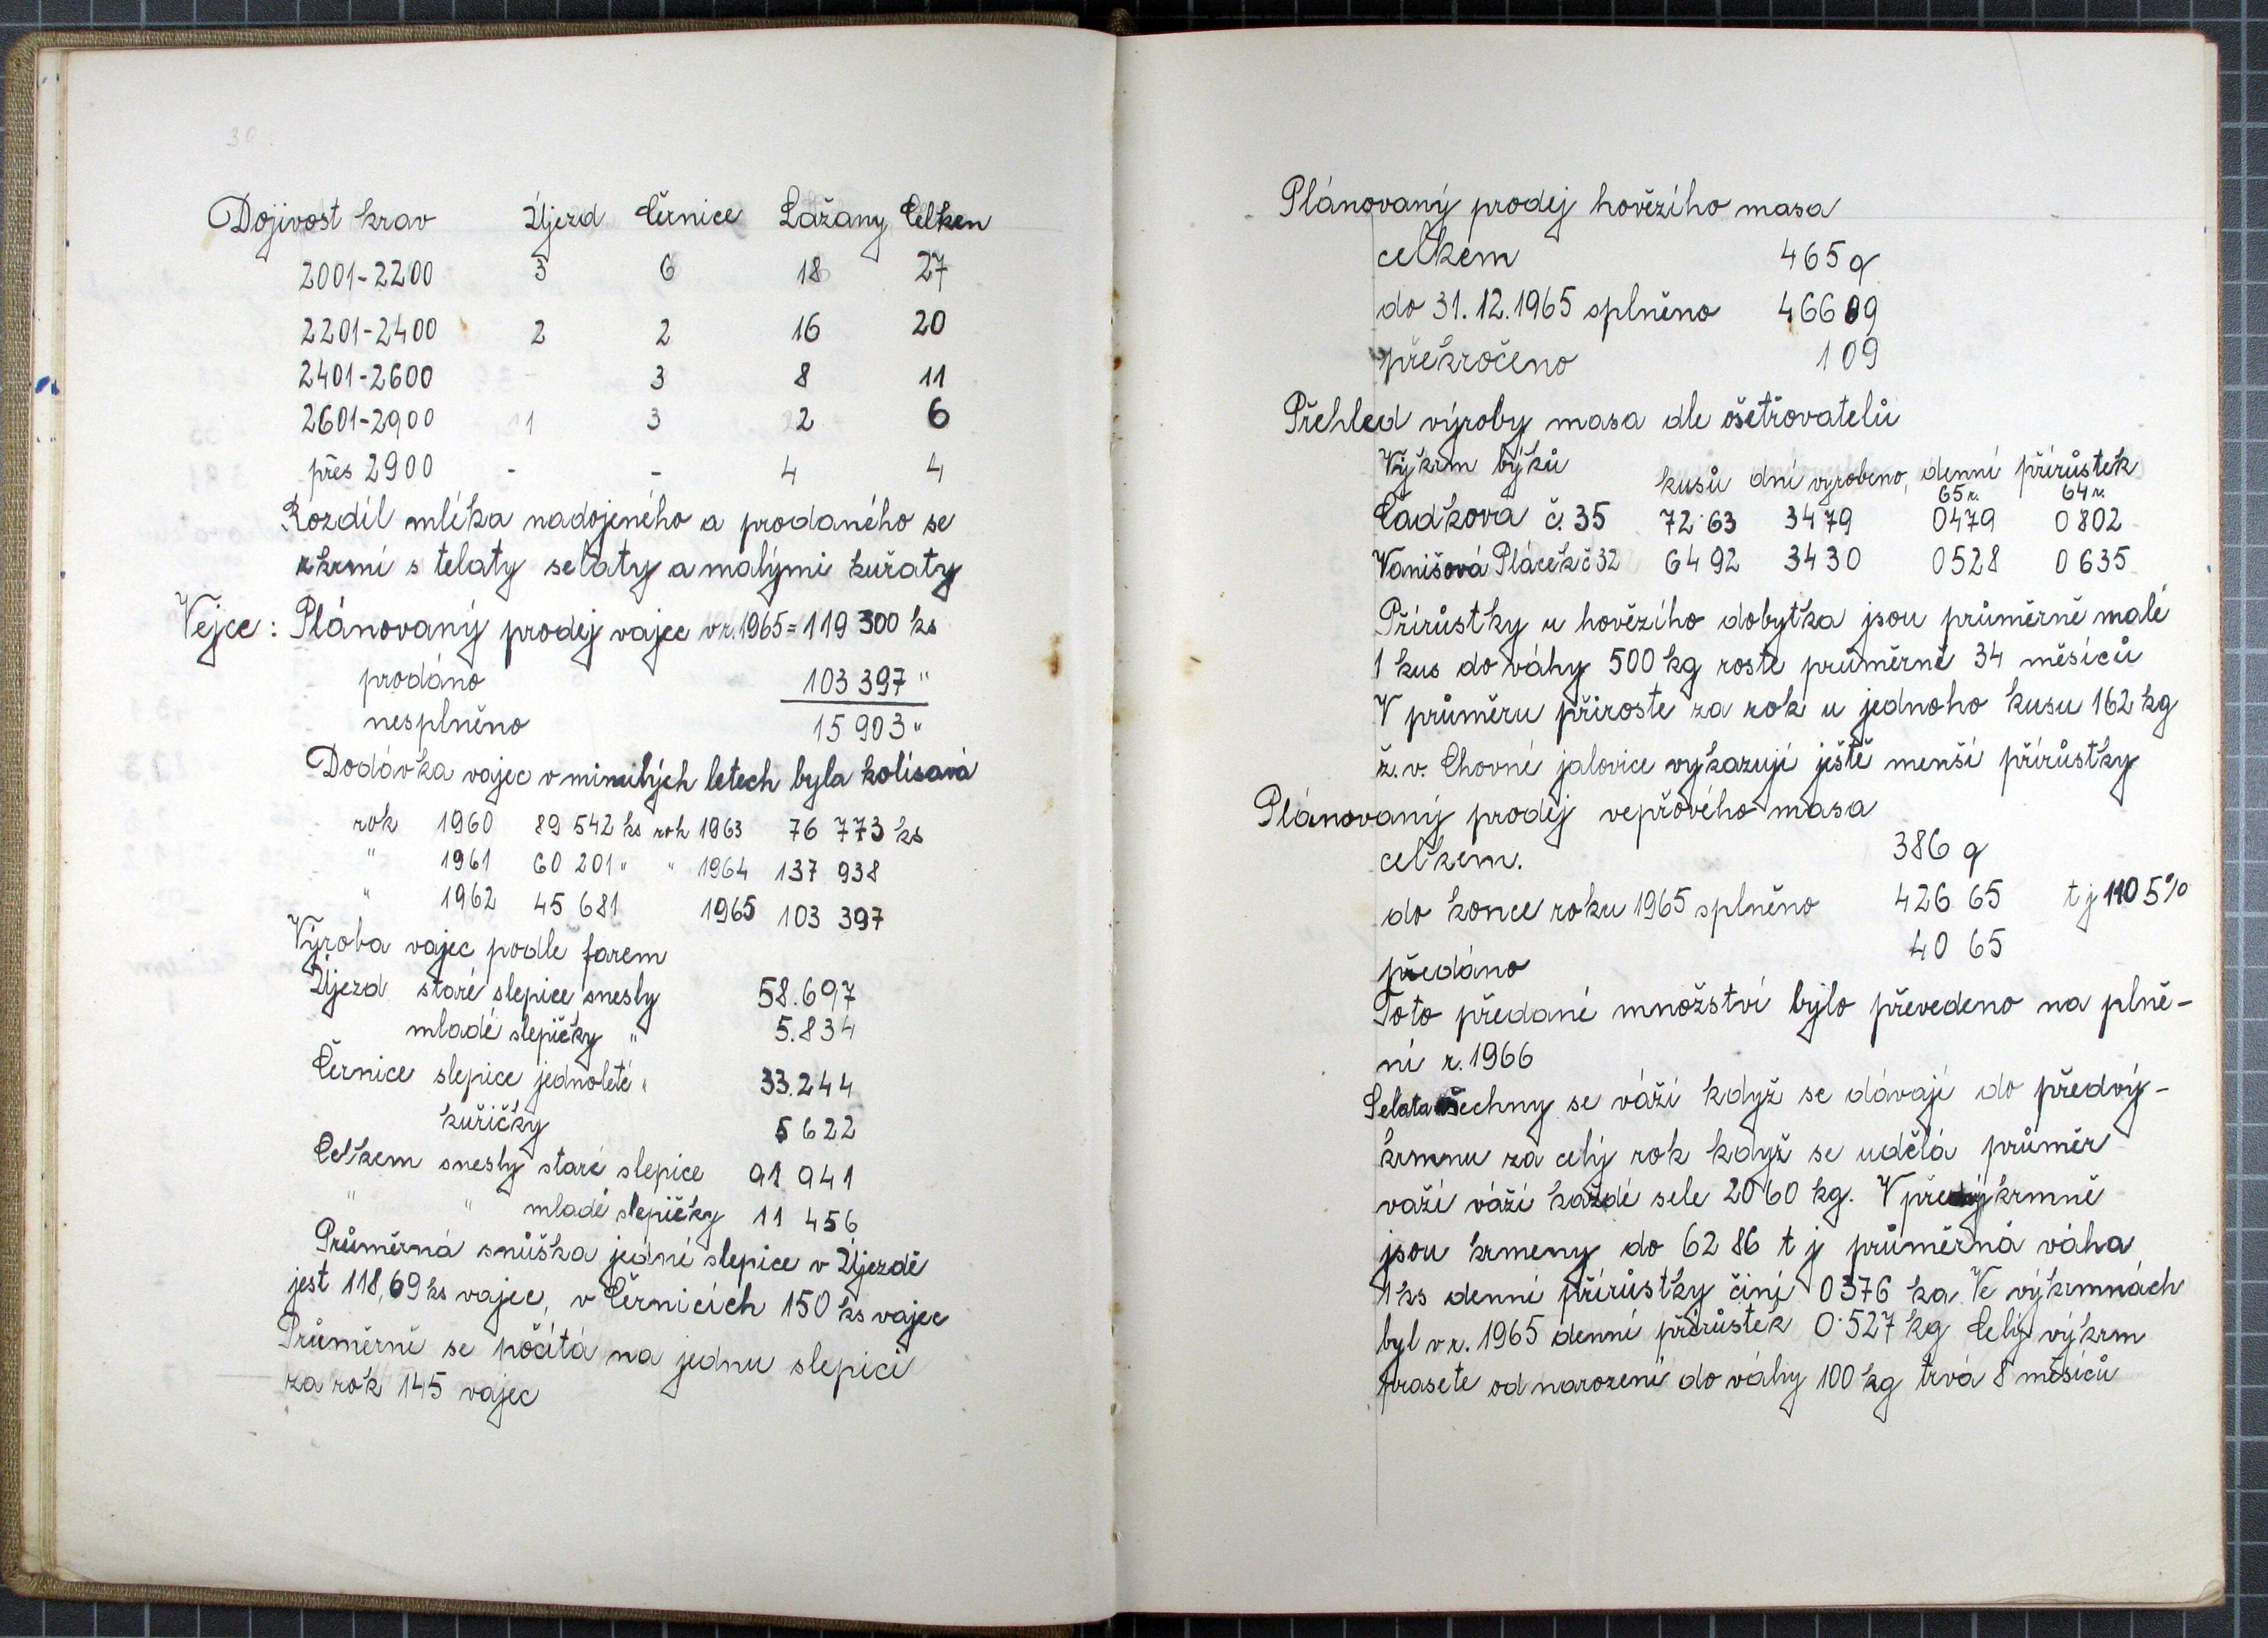 30
Dojivost krav Újezd Černice Lažany Celkem
2001-2200 3 6 18 27
2201-2400 2 2 16 20
2401-2600 3 8 11
2601-2900 1 3 2 6
přes 2900 - - 4 4
Rozdíl mléka nadojeného a prodaného se
zkrmí s telaty selaty a malými kuřaty
Vejce: Plánovaný prodej vajec v r. 1965 = 119 300 ks
prodáno 103 397 "
nesplněno 15 903 "
Dodávka vajec v minulých letech byla kolísavá
rok 1960 89 542 ks rok 1963 76 773 ks
" 1961 60 201 " " 1964 137 938
" 1962 45 681 1965 103 397
Výroba vajec podle farem
Újezd staré slepice snesly 58.697
mladé slepičky " 5.834
Černice slepice jednoleté " 33.244
kuřičky 5 622
Celkem snesly staré slepice 91 941
" " mladé slepičky 11 456
Průměrná snůška jedné slepice v Újezdě
jest 118,69 ks vajec, v Černicích 150 ks vajec
Průměrně se počítá na jednu slepici
za rok 145 vajec
Plánovaný prodej hovězího masa
celkem 465 q
do 31. 12. 1965 splněno 466 09
překročeno 1 09
Přehled výroby masa dle ošetřovatelů
Výkrm býků kusů dní vyrobeno, denní přírůstek
65 r. 64 r.
Čadková č. 35 72·63 34 79 0479 0 802
Vanišová Pláček č 32 64 92 34 30 0528 0 635
Přírůstky u hovězího dobytka jsou průměrně malé
1 kus do váhy 500 kg roste průměrně 34 měsíců
V průměru přiroste za rok u jednoho kusu 162 kg
ž. v. Chovné jalovice vykazují ještě menší přírůstky
Plánovaný prodej vepřového masa
celkem. 386 q
do konce roku 1965 splněno 426 65 t j 110 5%
předáno 40 65
Toto předané množství bylo převedeno na plně-
ní r. 1966
Selata všechny se váží když se dávají do předvý-
krmnu za celý rok když se udělá průměr
važí váží každé sele 20 60 kg. V předvýkrmně
jsou krmeny do 62 86 t j průměrná váha
1 ks denní přírůstky činí 0 376 kg. Ve výkrmnách
byl v r. 1965 denní přírůstek 0·527 kg Celý výkrm
prasete od narození do váhy 100 kg trvá 8 měsíců